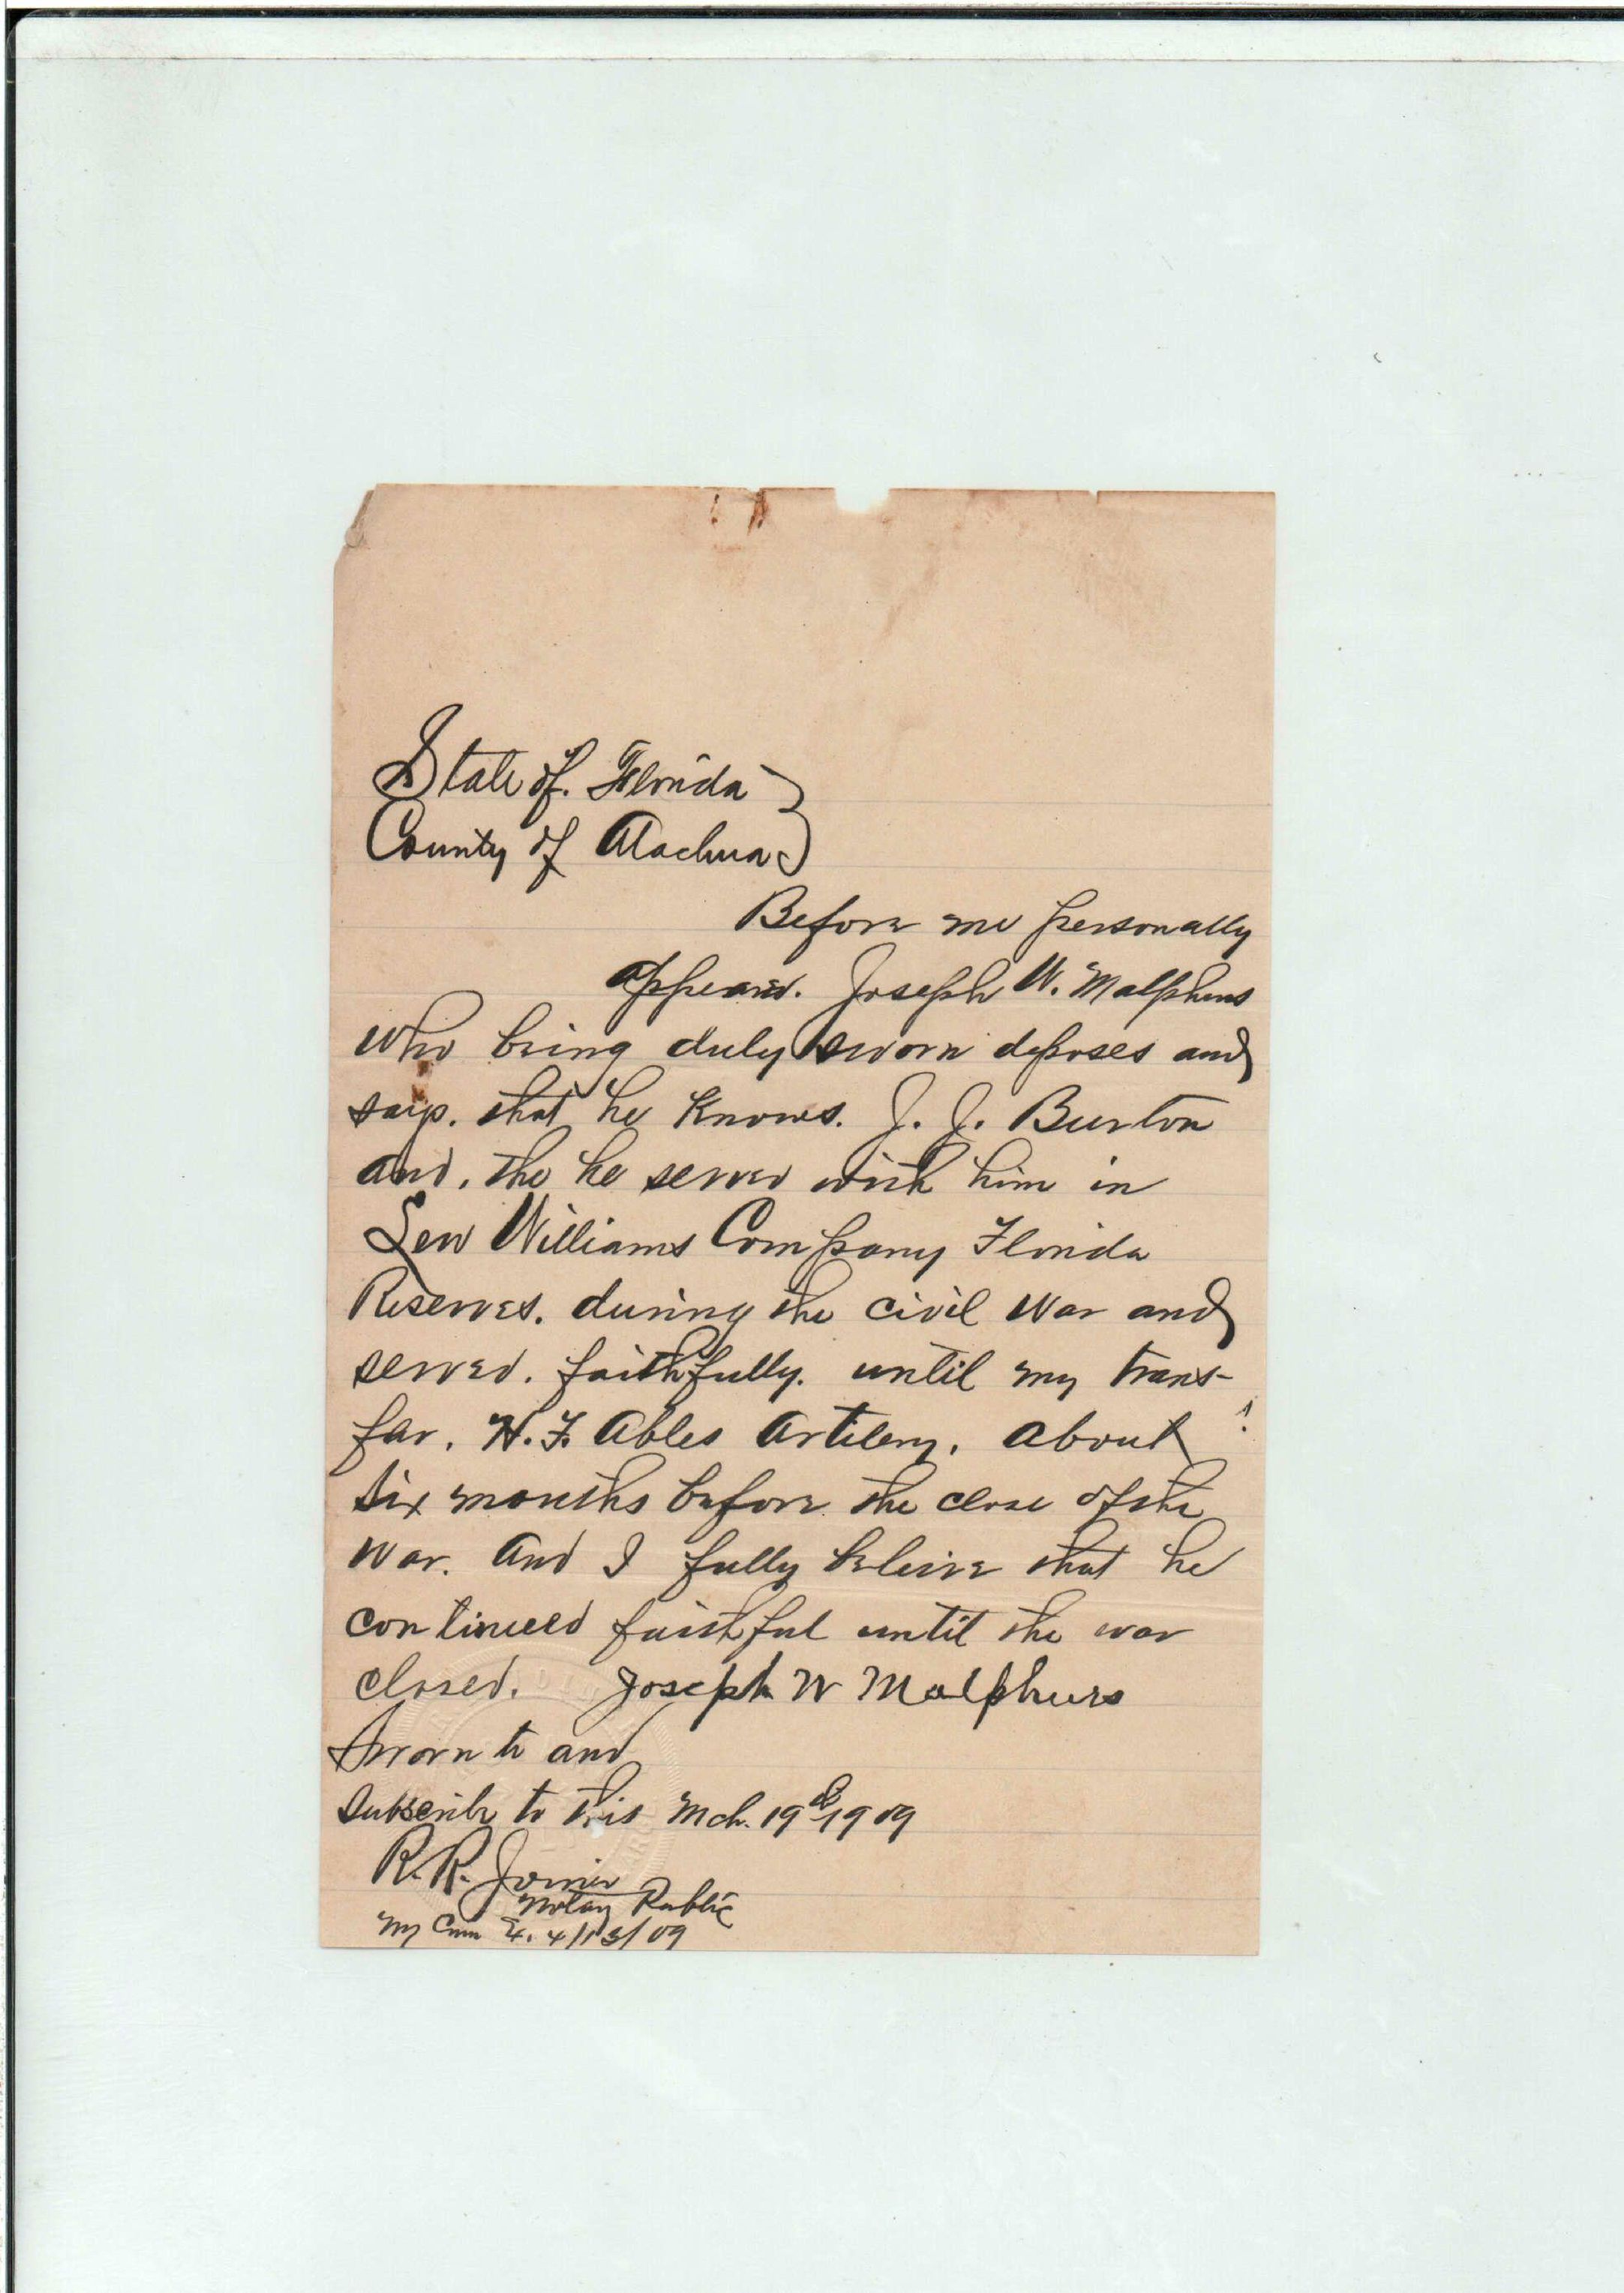 State of. Florida
County of Alachua
Before me personally
appeared. Joseph W. Malphurs
who being duly sworn deposes and
says. that he knows. J. J. Burton
and. the he served with him in
Lew Williams Company Florida
Reserves. during the civil war and
served. faithfully. until my trans-
far. H. F. Ables Artilery. about
six months before the close of the
war. and I fully beleive that he
continued faithful until the war
closed. Joseph W Malphurs
Sworn to and
subscribe to this Mch. 19th 1909
R. R. Joiner
Notary Public
My Com Ex. 4/13/09